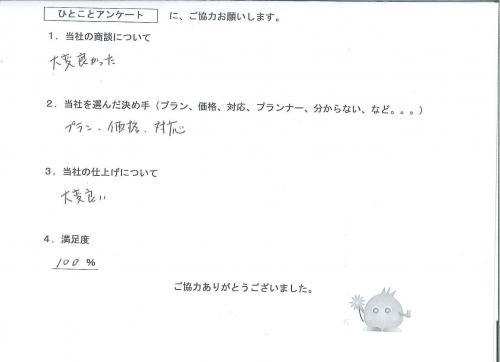 ひとことアンケート に、ご協力お願いします。
1．当社の商談について
大変良かった
2．当社を選んだ決め手（プラン、価格、対応、プランナー、分からない、など。。。）
プラン、価格、対応
3．当社の仕上げについて
大変良い
4．満足度
100 %
ご協力ありがとうございました。